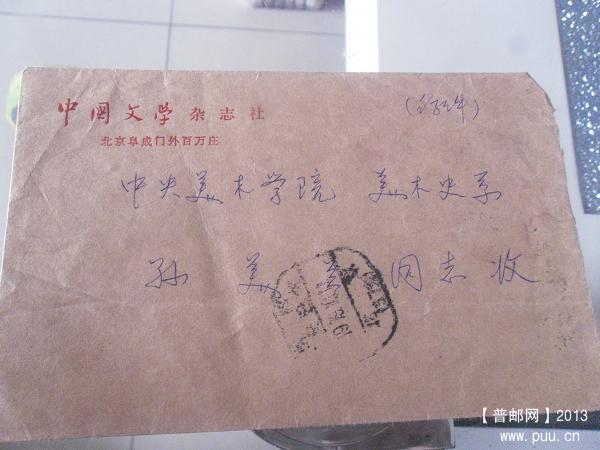 中国文学 杂志社
北京阜成门外百万庄
中央美术学院 美术史系
孙 美 兰 同志 收
【普邮网】2013
www.puu.cn